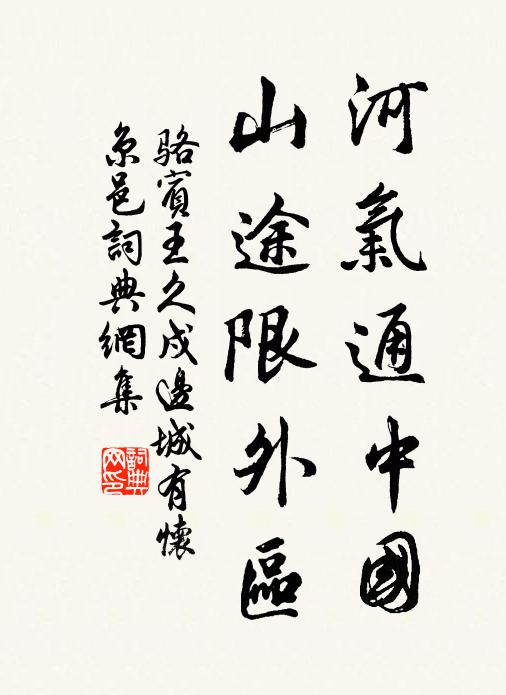 河氣通中國
山途限外區
駱賓王久戍邊城有懷
京邑詞典網集
詞典
网印